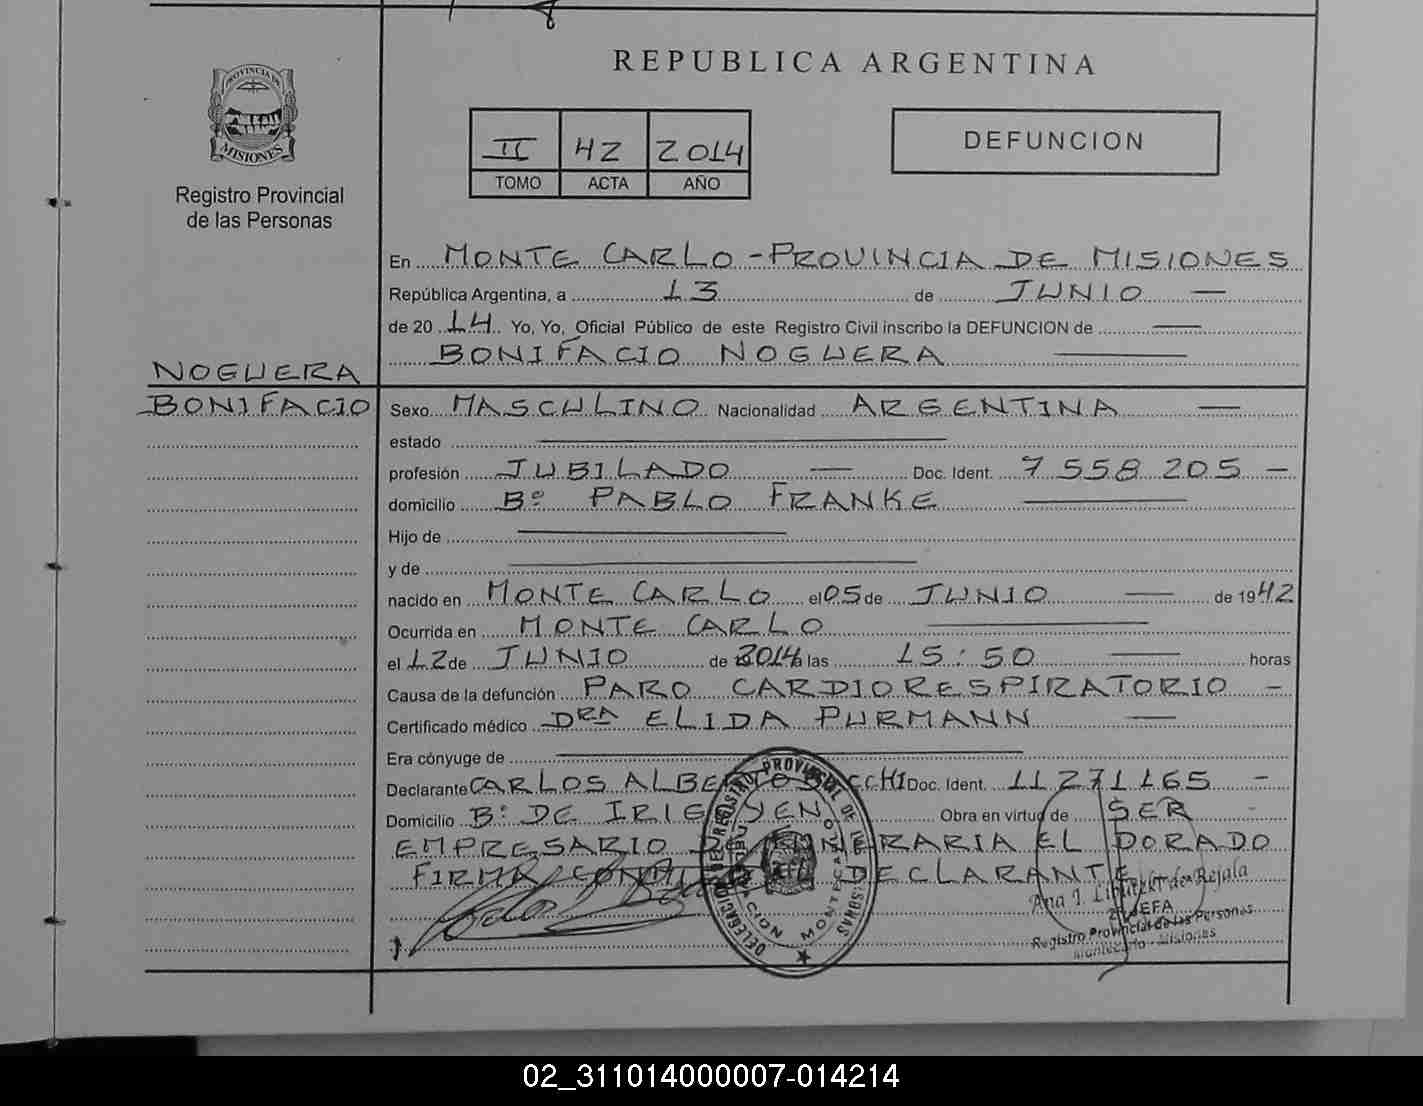 REPUBLICA ARGENTINA
PROVINCIA DE
MISIONES
Registro Provincial
de las Personas
II 42 2014
TOMO ACTA AÑO
DEFUNCION
En MONTE CARLO - PROVINCIA DE MISIONES
República Argentina, a 13 de JUNIO —
de 20 14 Yo, Yo, Oficial Público de este Registro Civil inscribo la DEFUNCION de —
BONIFACIO NOGUERA —
NOGUERA
BONIFACIO
Sexo MASCULINO Nacionalidad ARGENTINA —
estado —
profesión JUBILADO — Doc. Ident. 7 558 205 —
domicilio Bº PABLO FRANKE —
Hijo de —
y de —
nacido en MONTE CARLO el 05 de JUNIO — de 19 42
Ocurrida en MONTE CARLO —
el 12 de JUNIO de 2014 a las 15:50 — horas
Causa de la defunción PARO CARDIORESPIRATORIO —
Certificado médico DRA ELIDA PURMANN —
Era cónyuge de —
Declarante CARLOS ALBERTO Doc. Ident. 11 271 165 —
Domicilio Bº DE IRIGOYEN Obra en virtud de SER
EMPRESARIO EL DORADO
FIRMA DECLARANTE
DELEGACION MONTECARLO
Ana I. de Rejala
JEFA
Registro Provincial de las Personas
Montecarlo - Misiones
02_311014000007-014214